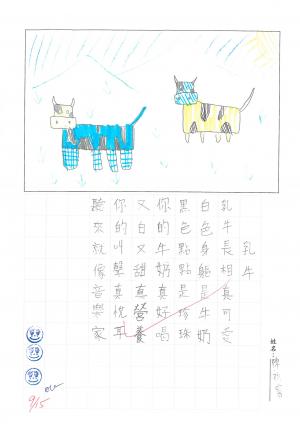 乳牛
乳牛長相真可愛
白色身軀是牛奶
黑色點點是珍珠
你的牛奶真好喝
又白又甜真營養
你的叫聲真悅耳
聽來就像音樂家
姓名：陳
9/15